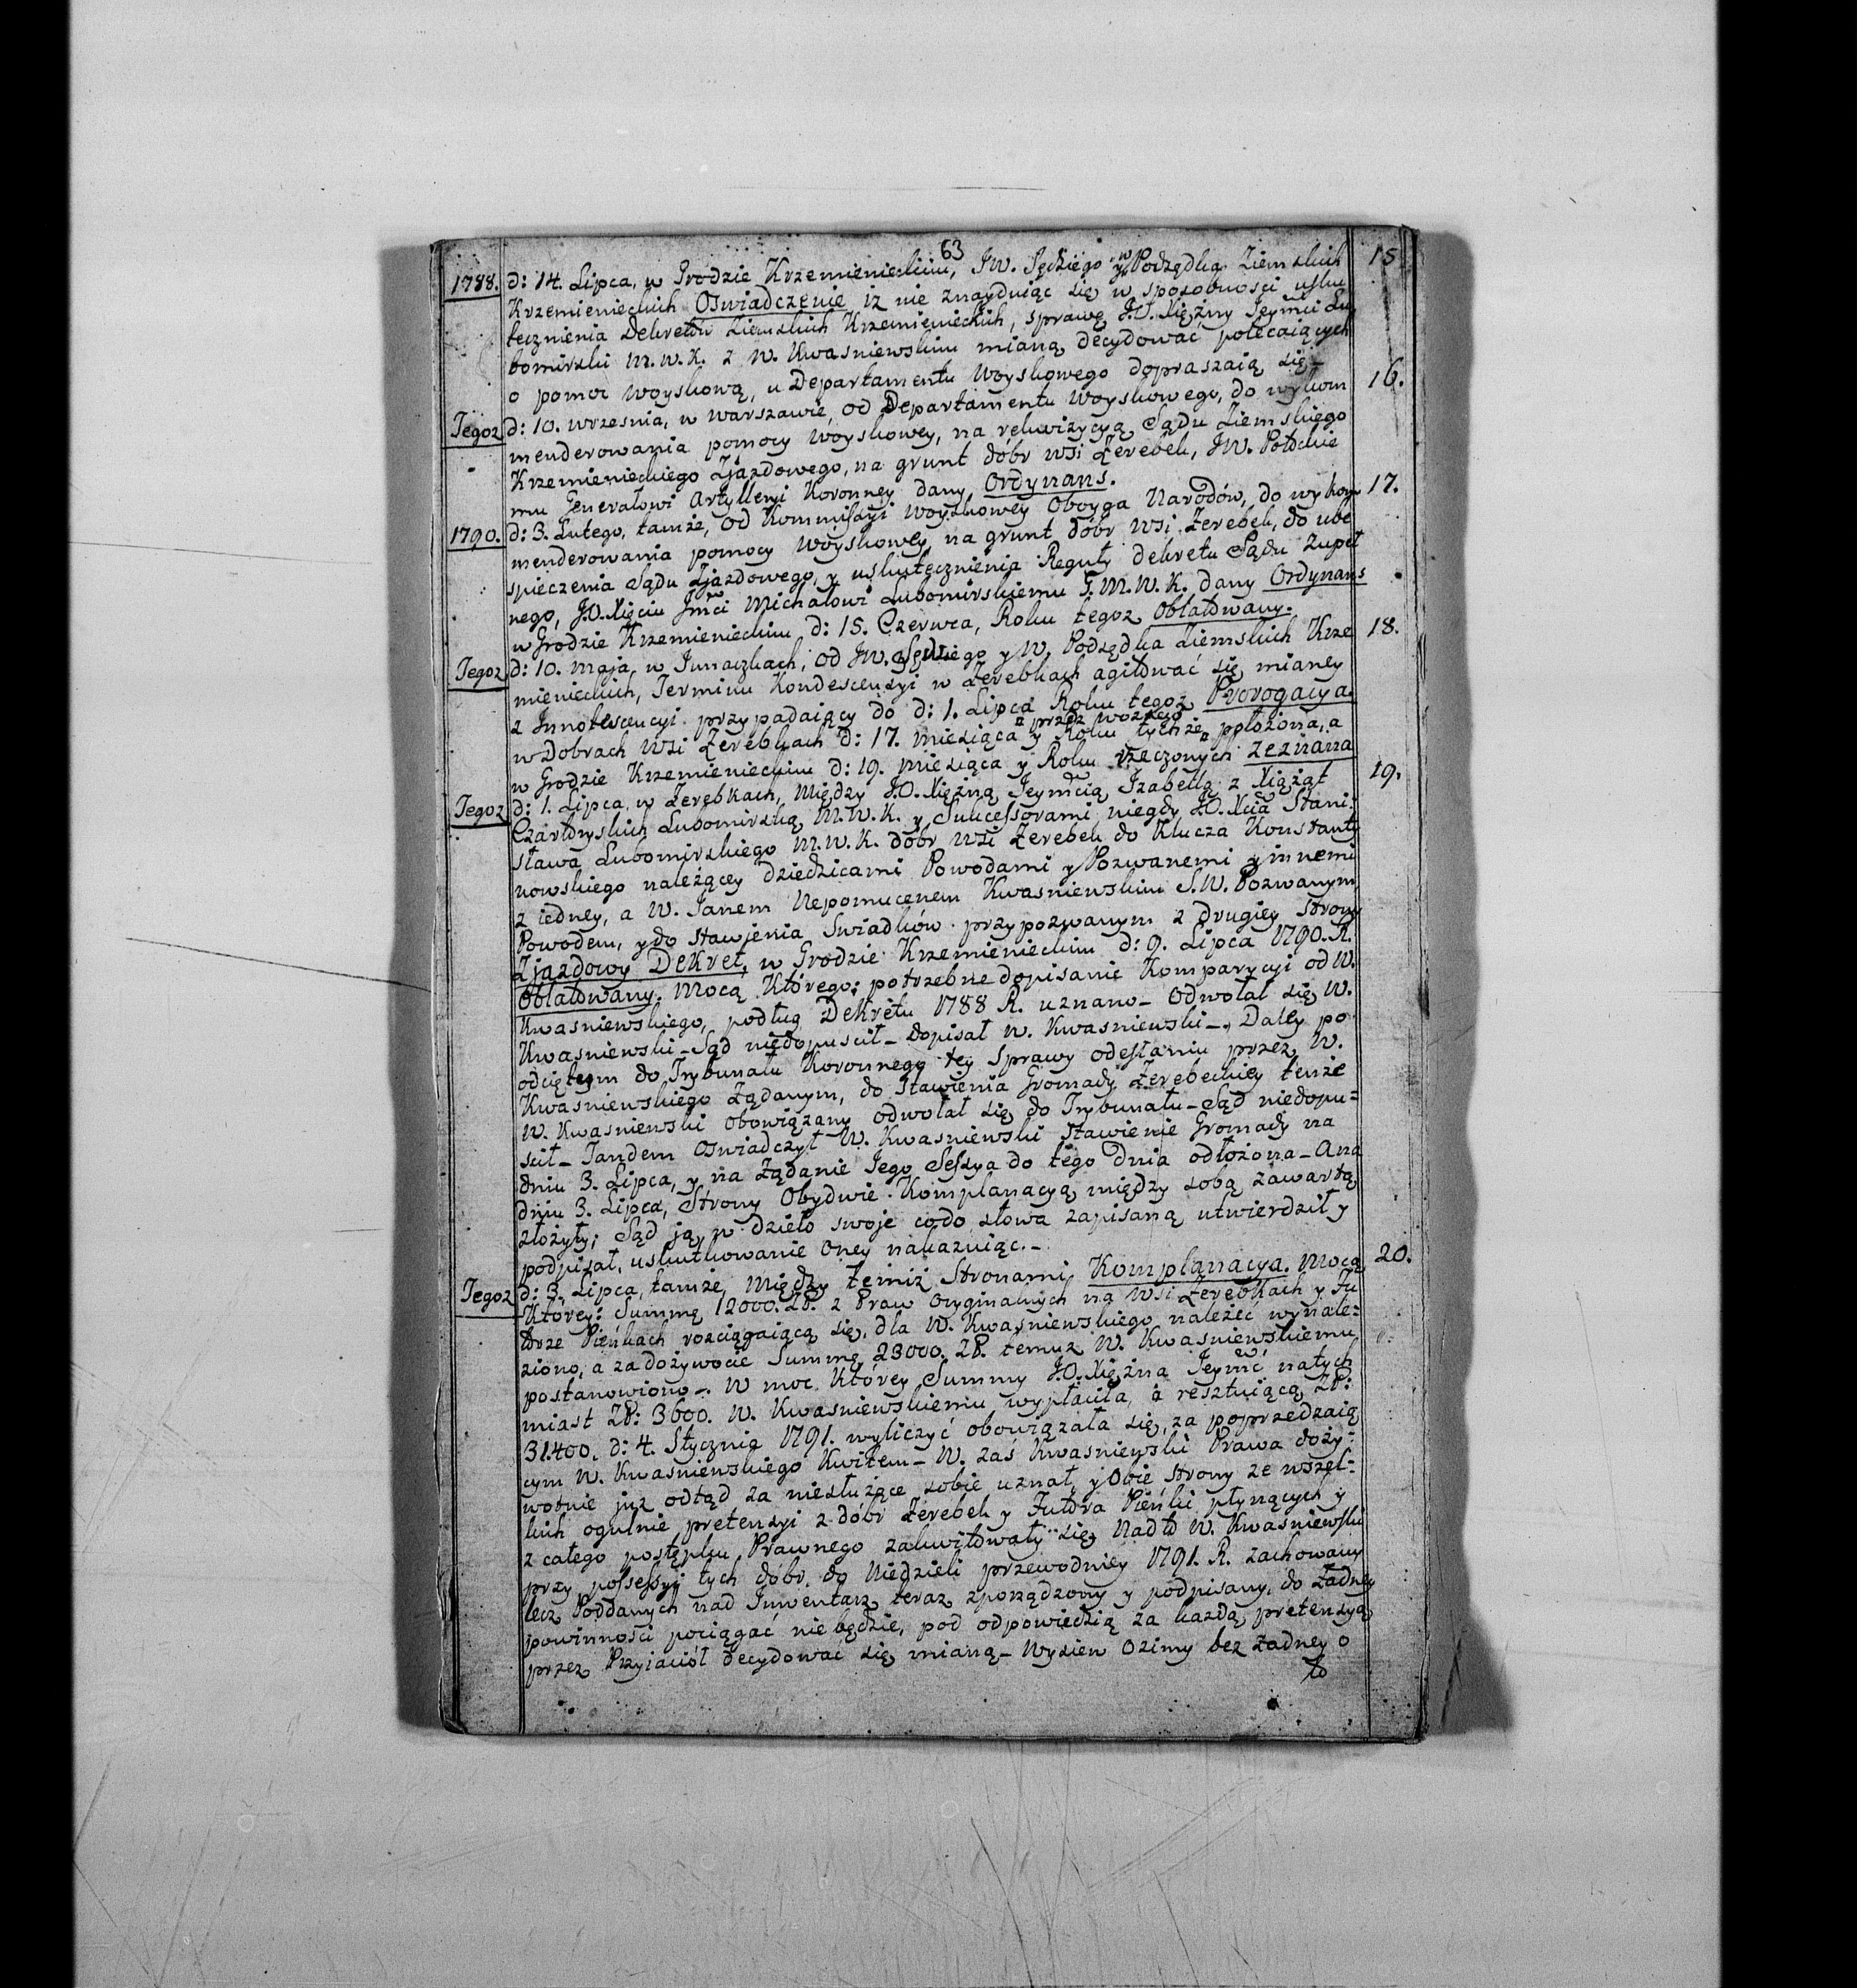 63
1788. d: 14. Lipca, w Grodzie Krzemienieckim, JW. Sędziego y W. Podsędka Ziemskich 15
Krzemienieckich Oswiadczenie iż nie znayduiąc się w sposobnosci usku
tecznienia Dekretów Ziemskich Krzemienieckich, sprawę J.O. Xiężny Jeymci Lu
bomirski M.W.K. z W. Kwasniewskim mianą decydować polecaiących
o pomoc woyskową, u Departamentu Woyskowego dopraszaią się_
Tegoz d: 10. wrzesnia, w Warszawie, od Departamentu Woyskowego, do wykom 16.
menderowania pomocy woyskowey, na rekwizycyą Sądu Ziemskiego
Krzemienieckiego Zjazdowego, na grunt dóbr wsi Zerebek, JW. Potockie
mu Generałowi Artylleryi Koronney dany Ordynans.
1790. d: 3. Lutego, tamże, od Kommissyi Woyskowey Oboyga Narodów, do wykom 17.
menderowania pomocy Woyskowey na grunt dóbr wsi Zerebek, do ube
spieczenia Sądu Zjazdowego, y uskutecznienia Reguły dekretu Sądu Zupeł
nego, J.O. Xięciu Jmci Michałowi Lubomirskiemu G.M.W.K. dany Ordynans
w Grodzie Krzemienieckim d: 15. Czerwca, Roku tegoz Oblatowany.
Tegoz d: 10. maja, w Junaczkach, od JW. Sędziego y W. Podsędka Ziemskich Krze 18.
mienieckich, Terminu Kondescensyi w Zerebkach agitować się mianey
z Innotescencyi przypadaiący do d: 1. Lipca Roku tegoż Prorogacya.
w Dobrach wsi Zerebkach d: 17. miesiąca y Roku tychże " przez woznego " położona, a
w Grodzie Krzemienieckim d: 19. miesiąca y Roku rzeczonych zeznana
Tegoz d: 1. Lipca, w Zerebkach, Między J.O. Xiężną Jeymcią Izabellą z Xiążąt 19.
Czartoryskich Lubomirską M.W.K. y Sukcessorami niegdy J.O. Xcia Stani:
sława Lubomirskiego M.W.K. dóbr wsi Zerebek do Klucza Konstanty
nowskiego należącey Dziedzicami Powodami y Pozwanemi y innemi
z iedney, a W. Janem Nepomucenem Kwasniewskim S.W. Pozwanym
Powodem, y do stawienia Swiadków przypozwanym z drugiey strony
Zjazdowy Dekret, w Grodzie Krzemienieckim d: 9. Lipca 1790. R.
Oblatowany. Mocą Którego: potrzebne dopisanie Komparycyi od W.
Kwasniewskiego, podług Dekretu 1788 R. uznano_ Odwołał się W.
Kwasniewski_ Sąd niedopuscił_ Dopisał W. Kwasniewski_. Daley po
odciętym do Trybunału Koronnego tey Sprawy odesłaniu przez W.
Kwasniewskiego Żądanym, do Stawienia Gromady Zerebeckiey tenże
W. Kwasniewski obowiązany odwołał się do Trybunału_ Sąd niedopu=
scił_ Tandem Oswiadczył W. Kwasniewski stawienie Gromady na
dniu 3. Lipca, y na Żądanie Jego Sessya do tego Dnia odłożona_ A na
dniu 3. Lipca, Strony Obydwie Komplanacyą między sobą zawartą
złożyły; Sąd ją, w dzieło swoje co do słowa zapisaną utwierdził y
podpisał, uskutkowanie oney nakazuiąc._
Tegoz d: 3. Lipca, tamże, Między temiż Stronami Komplanacya. Mocą 20.
Ktorey: Summę 12000. Zł. z Praw Oryginalnych na Wsi Zerebkach y Fu
torze Pieńkach rozciągaiącą się, dla W. Kwasniewskiego należeć wynale=
ziono, a za dożywocie Summę 23000. Zł. temuz W. Kwasniewskiemu
postanowiono_. W moc Którey Summy J.O. Xiężna Jeymć natych
miast Zł: 3600. W. Kwasniewskiemu wypłaciła, a resztuiącą Zł:
31.400. d: 4. Stycznia 1791. wyliczyć obowiązała się, za poprzedzaią
cym W. Kwasniewskiego Kwitem_ W. zaś Kwasniewski Prawa doży=
wotnie juz odtąd za niesłużące sobie uznał, y Obie Strony ze wszel=
kich ogulnie pretensyi z dóbr Zerebek y Futora Pieńki płynących y
z całego postępku Prawnego zakwitowały się. Nadto W. Kwasniewski
przy possessyi tych dóbr do Niedzieli przewodniey 1791. R. zachowany
lecz Poddanych nad Inwentarz teraz zporządzony y podpisany, do Żadney
powinności pociągać nie będzie, pod odpowiedzią za każdą pretensyą
przez Przyjaciół decydować się mianą_ Wysiew Ozimy bez Żadney o
to